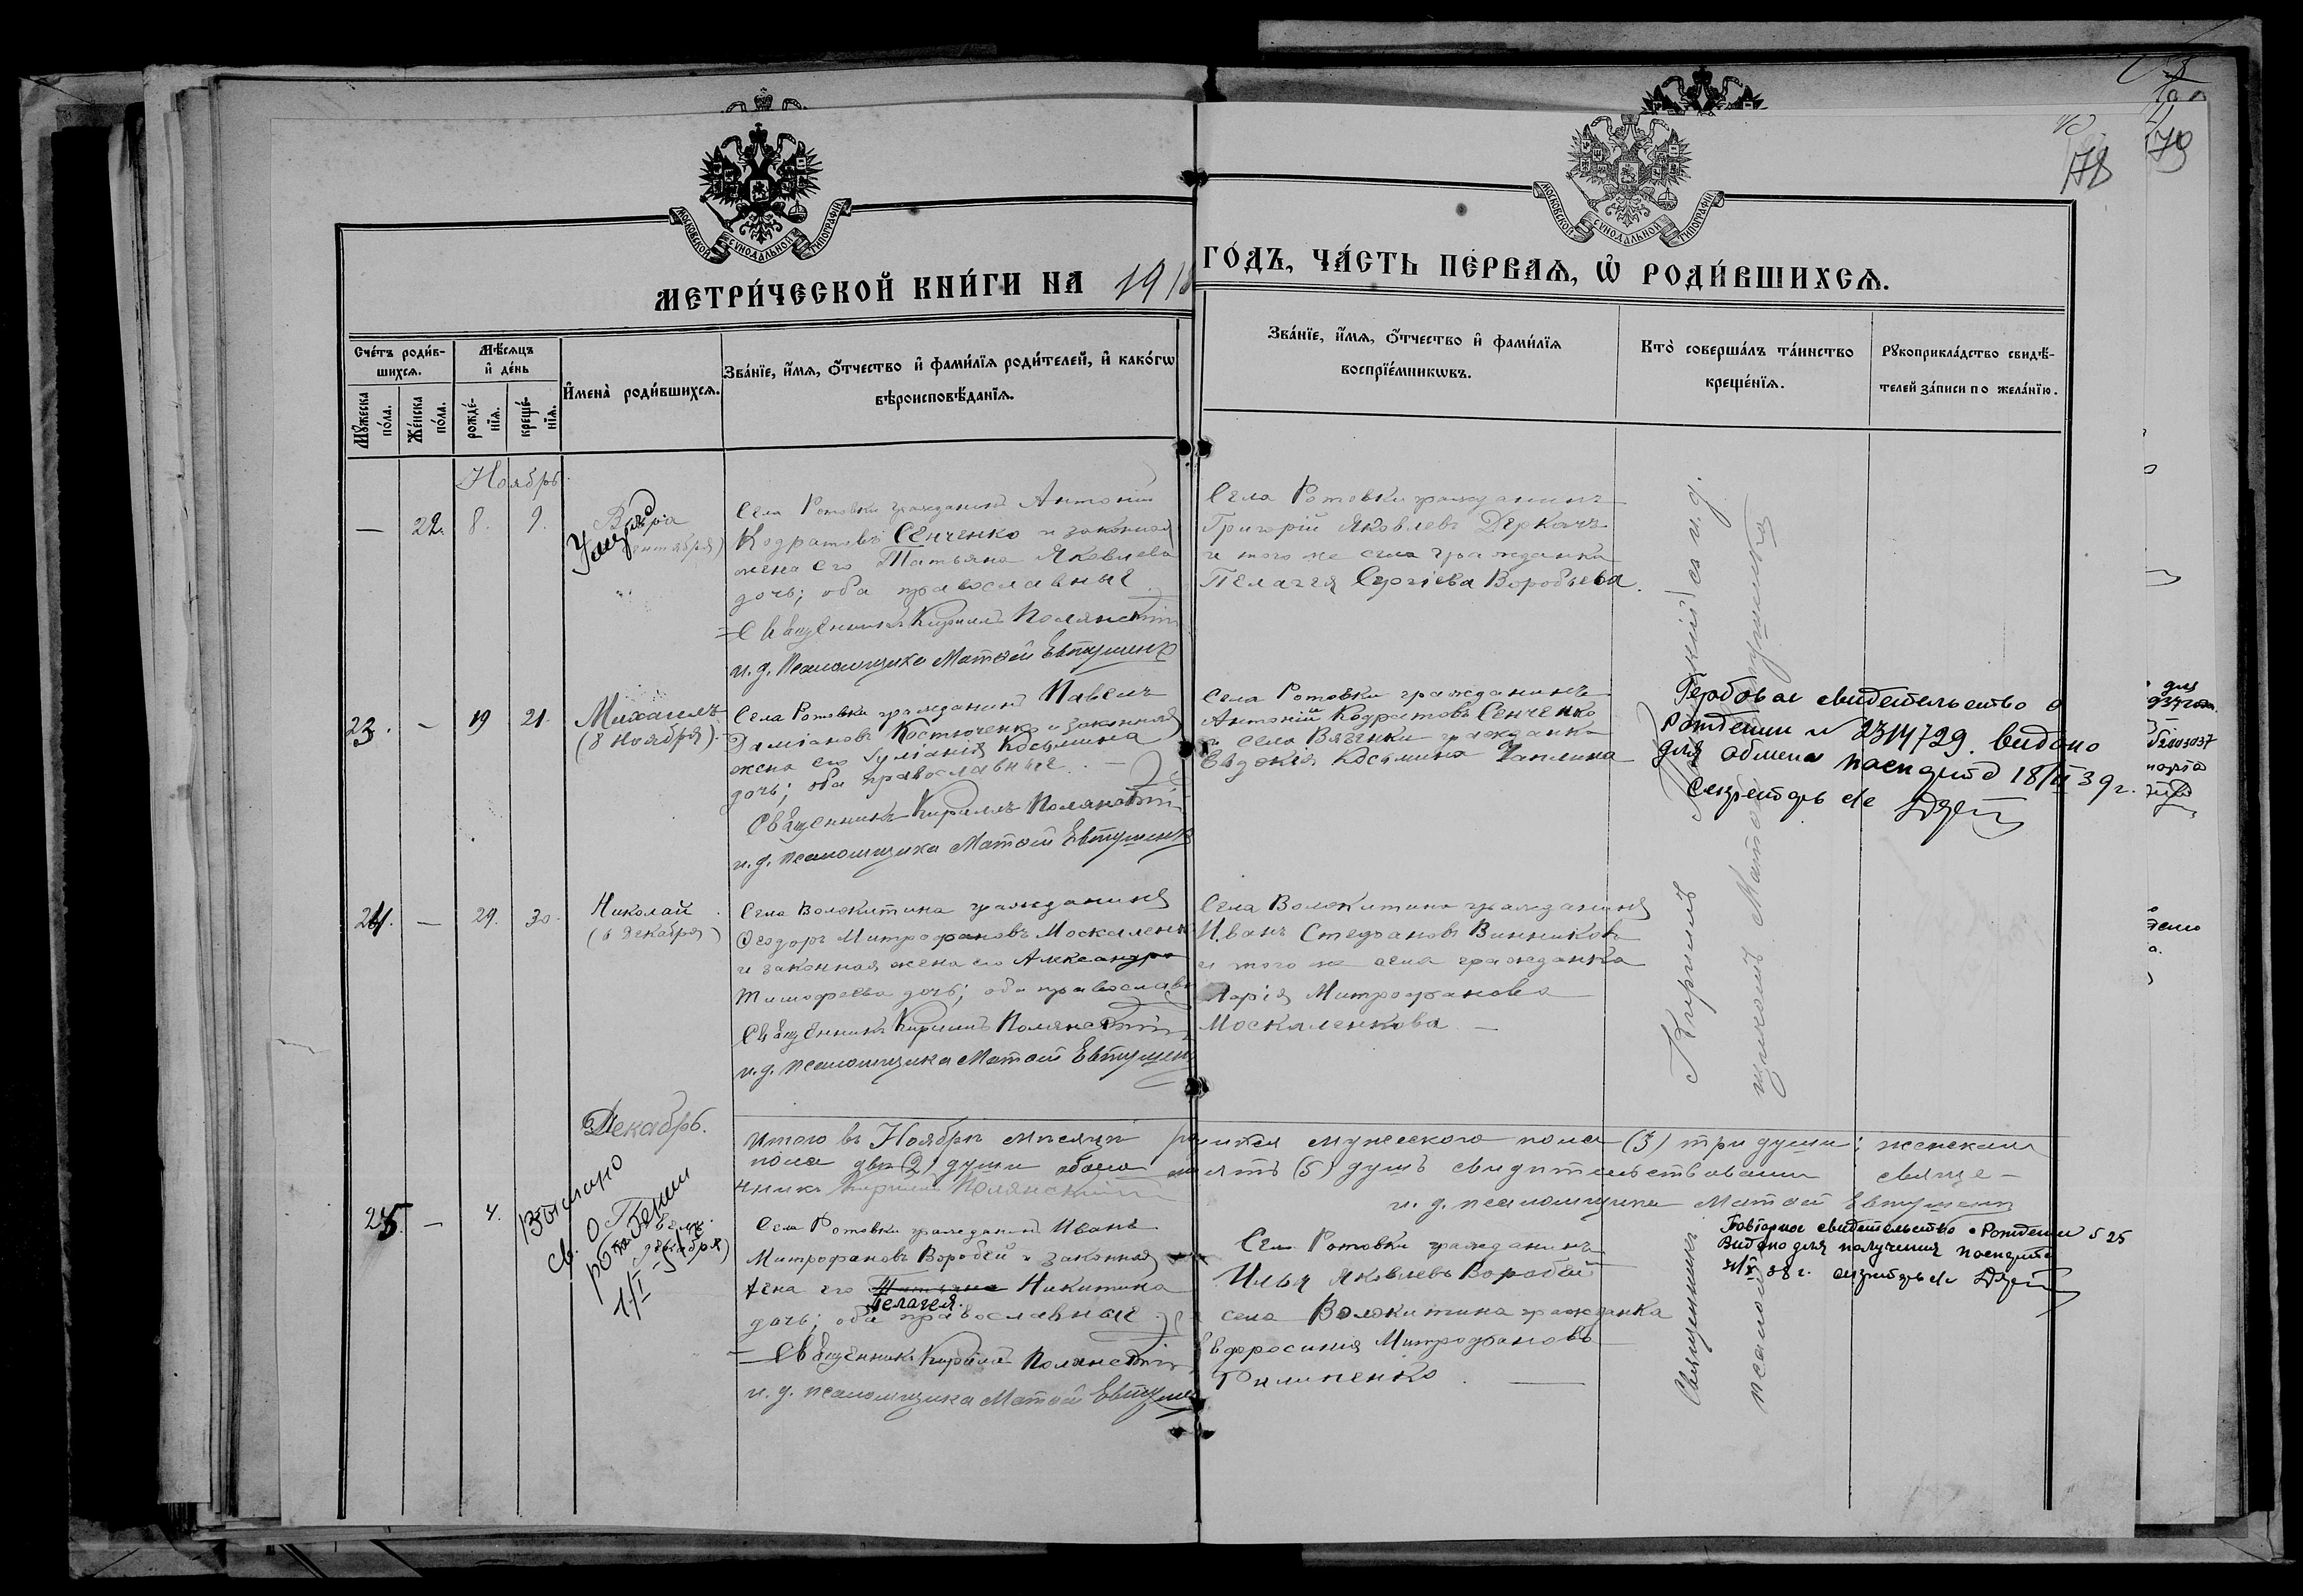 178
179
МОСКОВСКОЙ СУНОДАЛЬНОЙ ТИПОГРАФІИ
МОСКОВСКОЙ СУНОДАЛЬНОЙ ТИПОГРАФІИ
МЕТРИ́ЧЕСКОЙ КНИ́ГИ НА 191
ГО́ДЪ, ЧА́СТЬ ПЕ́РВАѦ, Ѡ҆ РОДИ́ВШИХСѦ.
Сче́тъ роди́в-
шихсѧ.
Мꙋ́жеска
по́ла.
Же́нска
по́ла.
Мѣ́сѧцъ
и҆ де́нь
рожде́-
нїѧ.
креще́-
нїѧ.
И҆мена̀ роди́вшихсѧ.
Зва́нїе, и҆́мѧ, о҆́тчество и҆ фами́лїѧ роди́телей, и҆ како́гѡ
вѣроисповѣ́данїѧ.
Зва́нїе, и҆́мѧ, о҆́тчество и҆ фами́лїѧ
воспрїе́мникѡвъ.
Кто̀ соверша́лъ та́инство
креще́нїѧ.
Рꙋкоприкла́дство свидѣ́-
телей за́писи по жела́нїю.
Ноябрь
— 22. 8. 9.
Вѣра
Умерла
Села Ротовки гражданинъ Антоній
Кодратовъ Сенченко и законная
жена его Татьяна Яковлева
дочь; оба православные
Священникъ Кириллъ Полянскій
и. д. псаломщика Матѳій Евтушенко
Села Ротовки гражданинъ
Григорій Яковлевъ Деркачъ
и того же села гражданка
Пелагея Сергіева Воробьева.
23. — 19 21.
Михаилъ
(8 Ноября).
Села Ротовки гражданинъ Павелъ
Даміановъ Костюченко и законная
жена его Іуліанія Косьмина
дочь; оба православные. —
Священникъ Кириллъ Полянскій
и. д. псаломщика Матѳій Евтушенко
Села Ротовки гражданинъ
Антоній Кодратовъ Сенченко
и села Вязенки гражданка
Евдокія Косьмина Чаплина
Гербовое свидетельство о
Рождении № 2314729. видано
для обмена паспорта 18/ 39 г.
Секретарь с/с
24. — 29. 30.
Николай
(6 Декабря)
Села Волокитина гражданинъ
Ѳеодоръ Митрофановъ Москаленко
и законная жена его Александра
Тимофеева дочь; оба православ
Священникъ Кириллъ Полянскій
и. д. псаломщика Матѳій Евтушен
Села Волокитина гражданинъ
Иванъ Стефановъ Винниковъ
и того же села гражданка
Марія Митрофанова
Москаленкова —
Итого въ Ноябрѣ мѣсяцѣ родился мужескаго пола (3) три души; женскаго
пола двѣ (2) души обоего пять (5) душъ свидѣтельствовали свяще-
нникъ Кириллъ Полянскій
и. д. псаломщика Матѳій Евтушенко
Декабрь.
25. — 4.
Выдано
св. О
рождении
1/I
декабря)
Села Ротовки гражданинъ Иванъ
Митрофановъ Воробей и законная
жена его Никитина
Пелагея.
дочь; оба православные.
Священникъ Кириллъ Полянскій
и. д. псаломщика Матѳій Евтушен
Села Ротовки гражданинъ
Илья Яковлевъ Воробей
села Волокитина гражданка
Евфросинія Митрофанова
Филипенко. —
Повторное свидетельство о Рождении № 25
Видано для получения паспорта
38 г. секретарь с/с
Священникъ Кириллъ Полянскій съ и. д.
псаломщикомъ Матѳіемъ Евтушенко